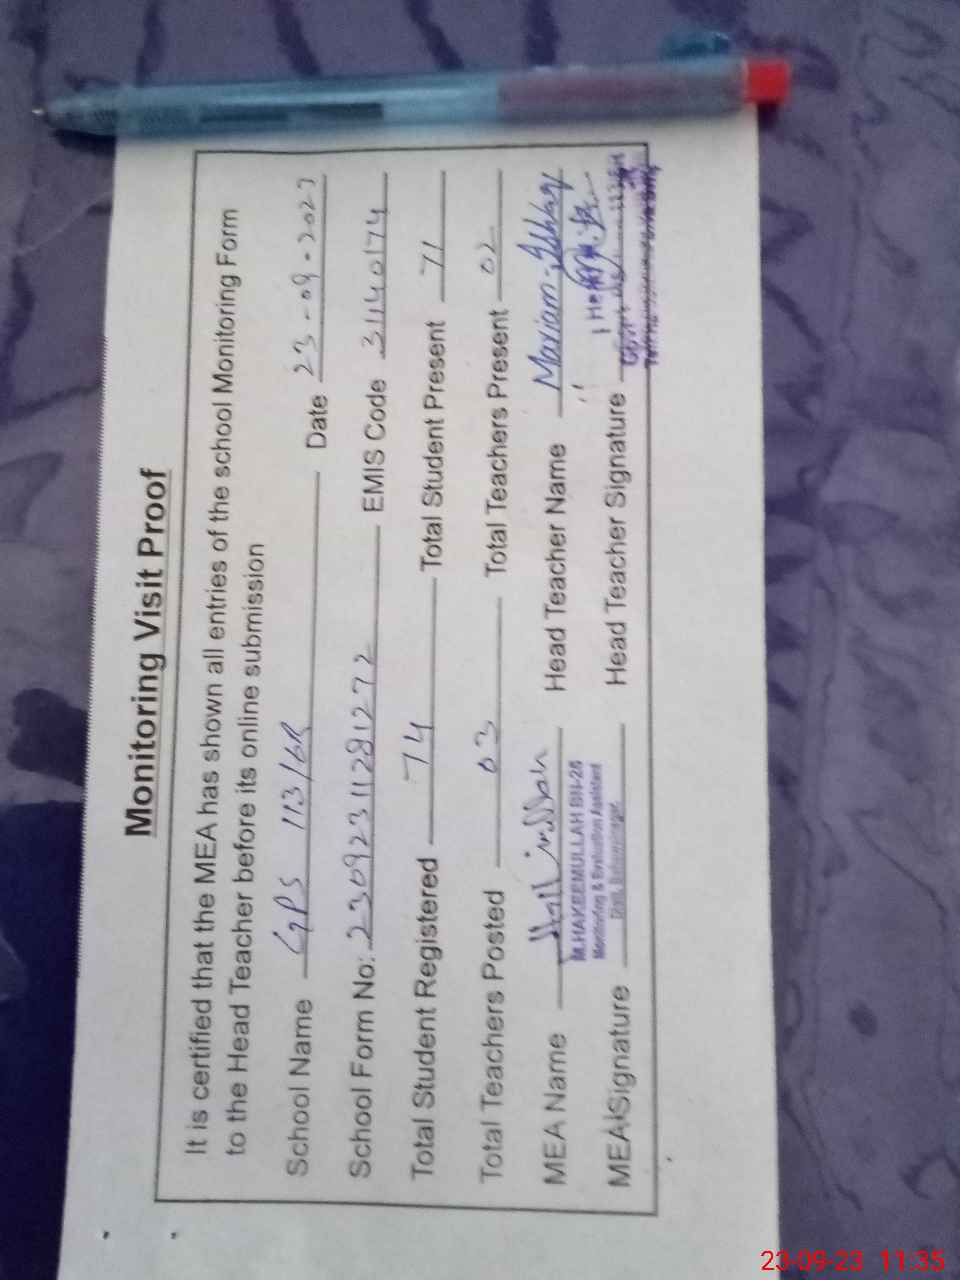 Monitoring Visit Proof
It is certified that the MEA has shown all entries of the school Monitoring Form
to the Head Teacher before its online submission
School Name GPS 113/6R Date 23-09-2023
School Form No: 23092311281272 EMIS Code 31140174
Total Student Registered 74 Total Student Present 71
Total Teachers Posted 03 Total Teachers Present 02
MEA Name Head Teacher Name Mariam Ishaq
M.HAKEEMULLAH BN-26
Monitoring & Evaluation Assistant
MEA Signature Head Teacher Signature
23-09-23 11:35